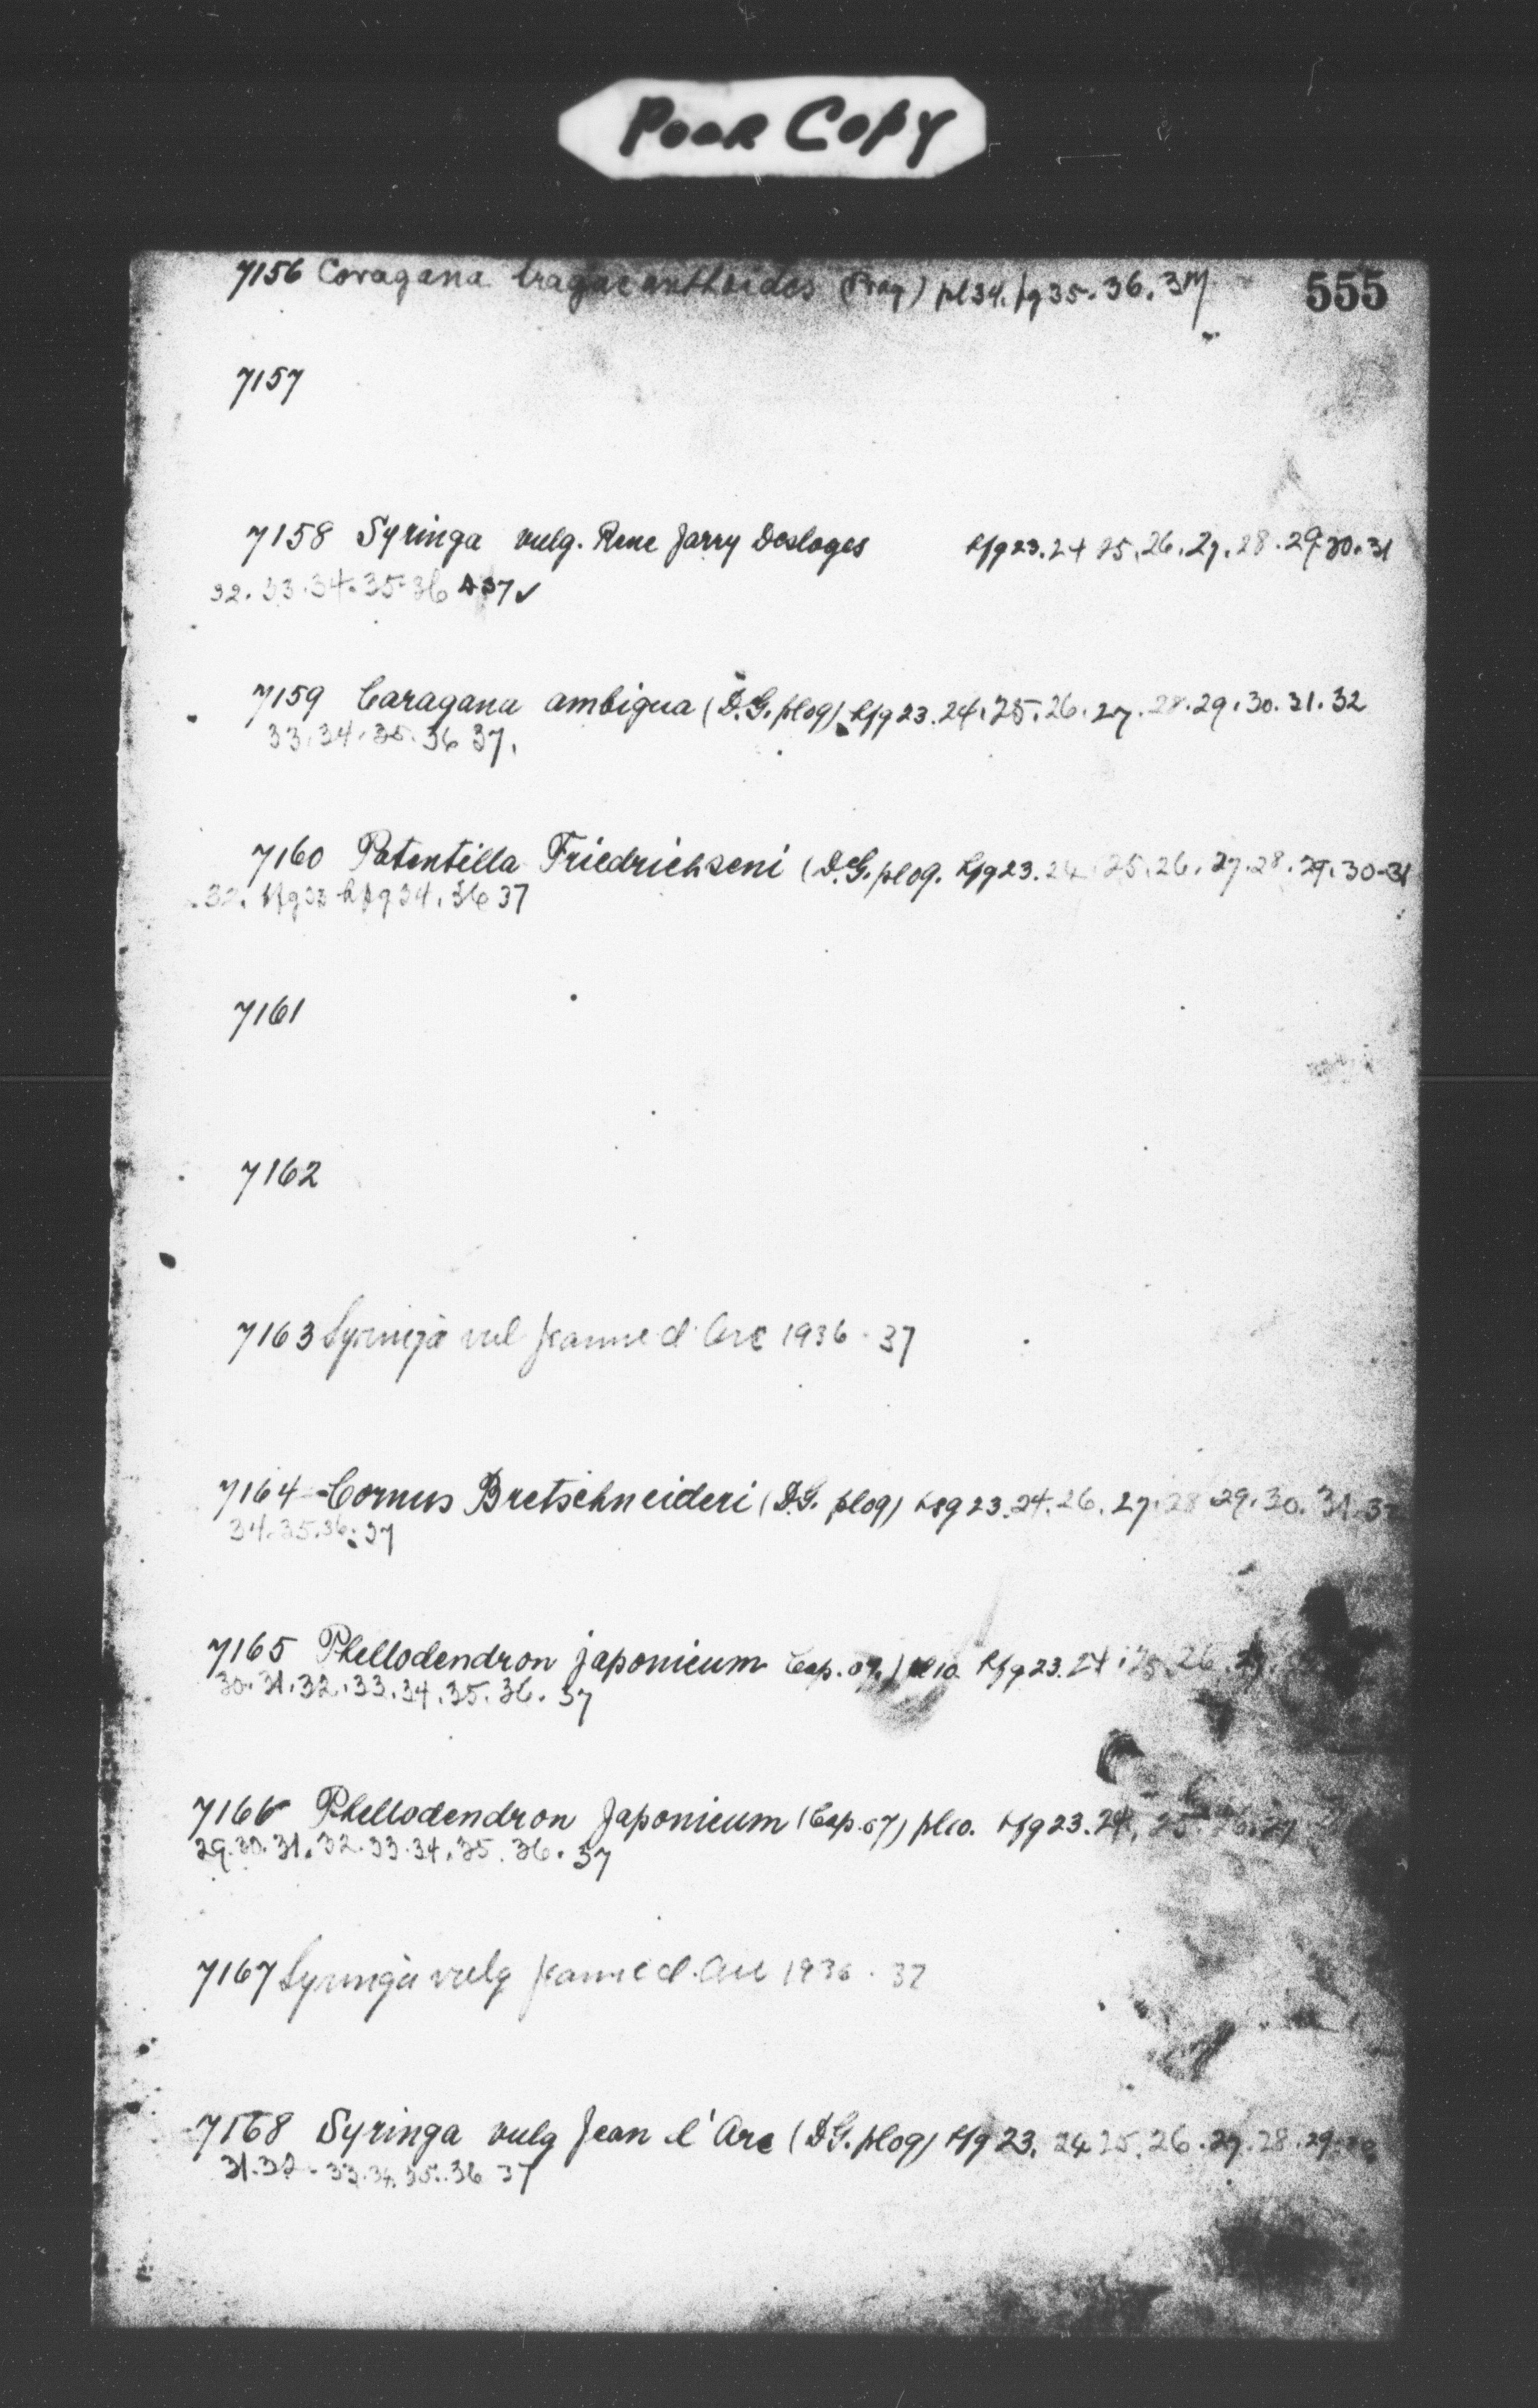 Poor Copy
555
7156 Coragana tragacanthoides (Prag) pl34. fg35. 36. 37
7157
7158 Syringa vulg. Rene Jarry Desloges Lfg23. 24 25. 26. 27. 28. 29. 30. 31
32. 33. 34. 35. 36 37 ✓
7159 Caragana ambigua (D.G. pl09) Lfg23. 24. 25. 26. 27. 28. 29. 30. 31. 32
33. 34. 35. 36 37.
7160 Potentilla Friedrichseni (D.G. pl09. Lfg23. 24. 25. 26. 27. 28. 29. 30-31
32. 34. 36 37
7161
7162
7163 Syringa vul Jeanne d'Arc 1936 . 37
7164 Cornus Bretschneideri (D.G. pl09) Lsg23. 24. 26. 27. 28 29. 30. 31
34. 35. 36. 37
7165 Phellodendron japonicum Cap. 07.) pl10. Lfg23. 24. 25. 26. 27.
30. 31. 32. 33. 34. 35. 36. 37
7166 Phellodendron Japonicum (Cap. 07) pl10. Lfg23. 24. 25. 26. 27
29. 30. 31. 32. 33. 34. 35. 36. 37
7167 Syringa vulg Jeanne d'Arc 1936 . 37
7168 Syringa vulg Jean d'Arc (D.G. pl09) Lfg23. 24 25. 26. 27. 28. 29. 30
31. 32. 33. 34. 35. 36 37